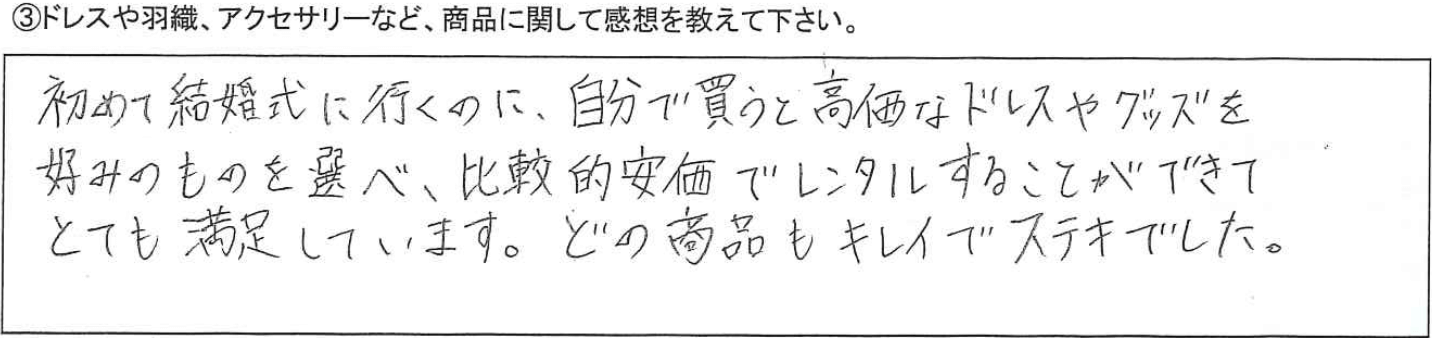 ③ドレスや羽織、アクセサリーなど、商品に関して感想を教えて下さい。
初めて結婚式に行くのに、自分で買うと高価なドレスやグッズを
好みのものを選べ、比較的安価でレンタルすることができて
とても満足しています。どの商品もキレイでステキでした。